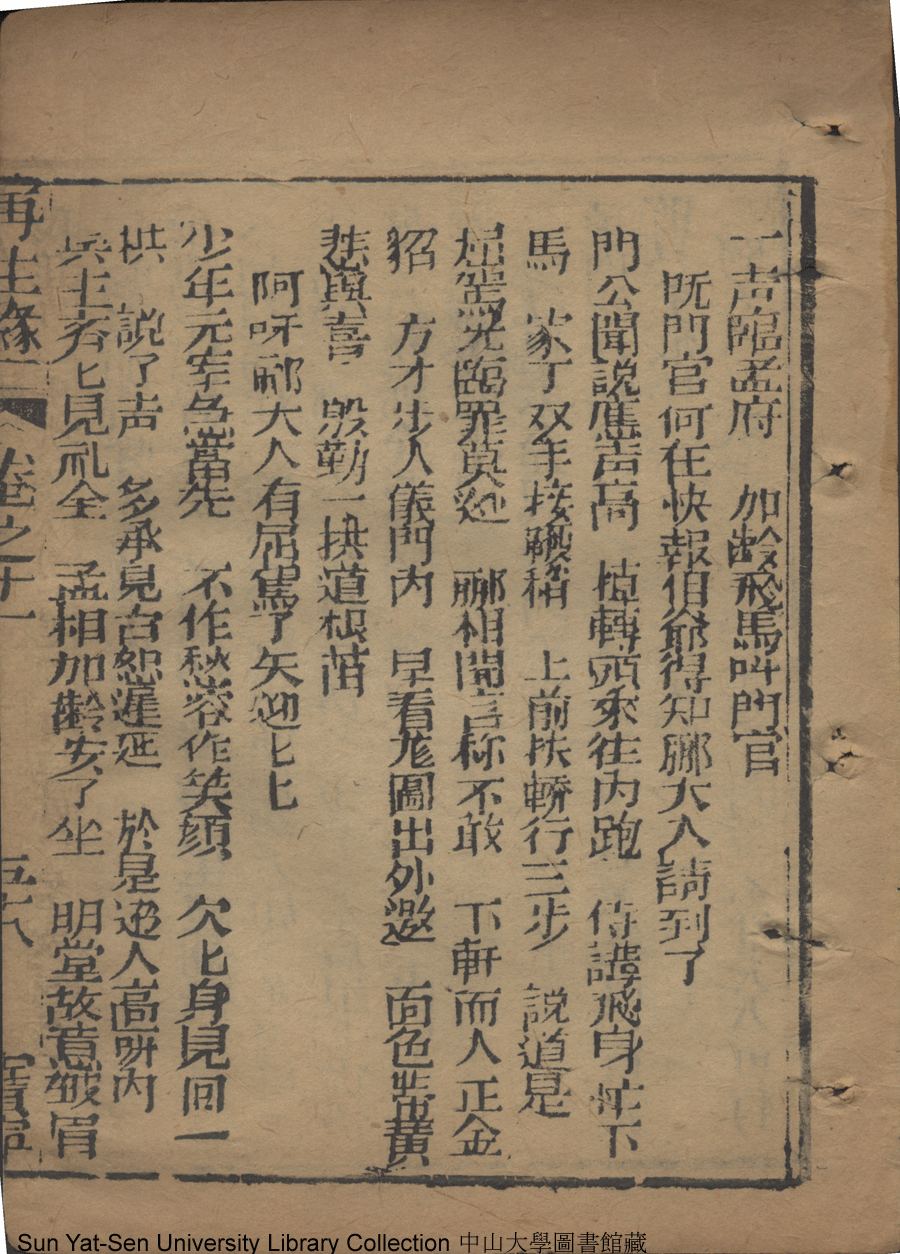 一声臨孟府 加齡飛馬叫門官
既門官何在快報伯爺得知郦大人請到了
門公聞說應声高 轉頭來往内跑 侍講飛身忙下
馬 家丁双手接 上前扶轎行三步 説道是
屈駕光臨罪莫 郦相開言称不敢 下軒而人正金
貂 方才步人儀門内 早看龙圖出外邀 面色焦黄
悲與喜 殷勤一拱道根苗
阿呀郦大人有屈駕了矢迎匕匕
少年元宰急當先 不作愁容作笑顔 欠匕身見回一
拱 説了声 多承見召恕遲延 於是迎人高所内
兵主斉匕見礼全 孟相加齡安了坐 明堂故意皱眉
再生緣 卷之十一 五十八
Sun Yat-Sen University Library Collection 中山大學圖書館藏